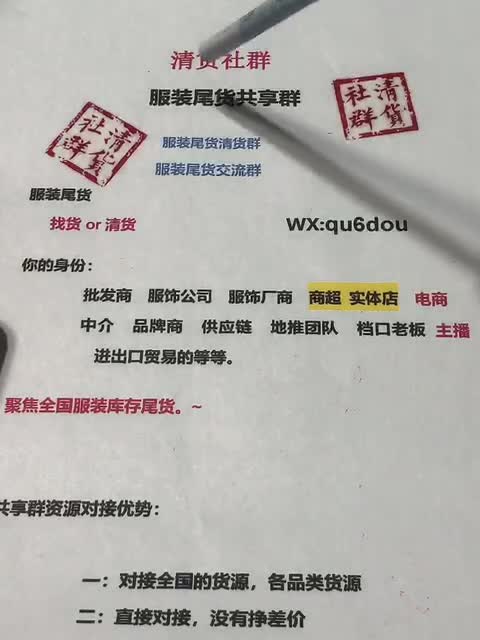 清货社群
服装尾货共享群
清货
社群
清货
社群
服装尾货清货群
服装尾货交流群
服装尾货
找货 or 清货
WX:qu6dou
你的身份：
批发商 服饰公司 服饰厂商 商超 实体店 电商
中介 品牌商 供应链 地推团队 档口老板 主播
进出口贸易的等等。
聚焦全国服装库存尾货。~
共享群资源对接优势：
一：对接全国的货源，各品类货源
二：直接对接，没有挣差价